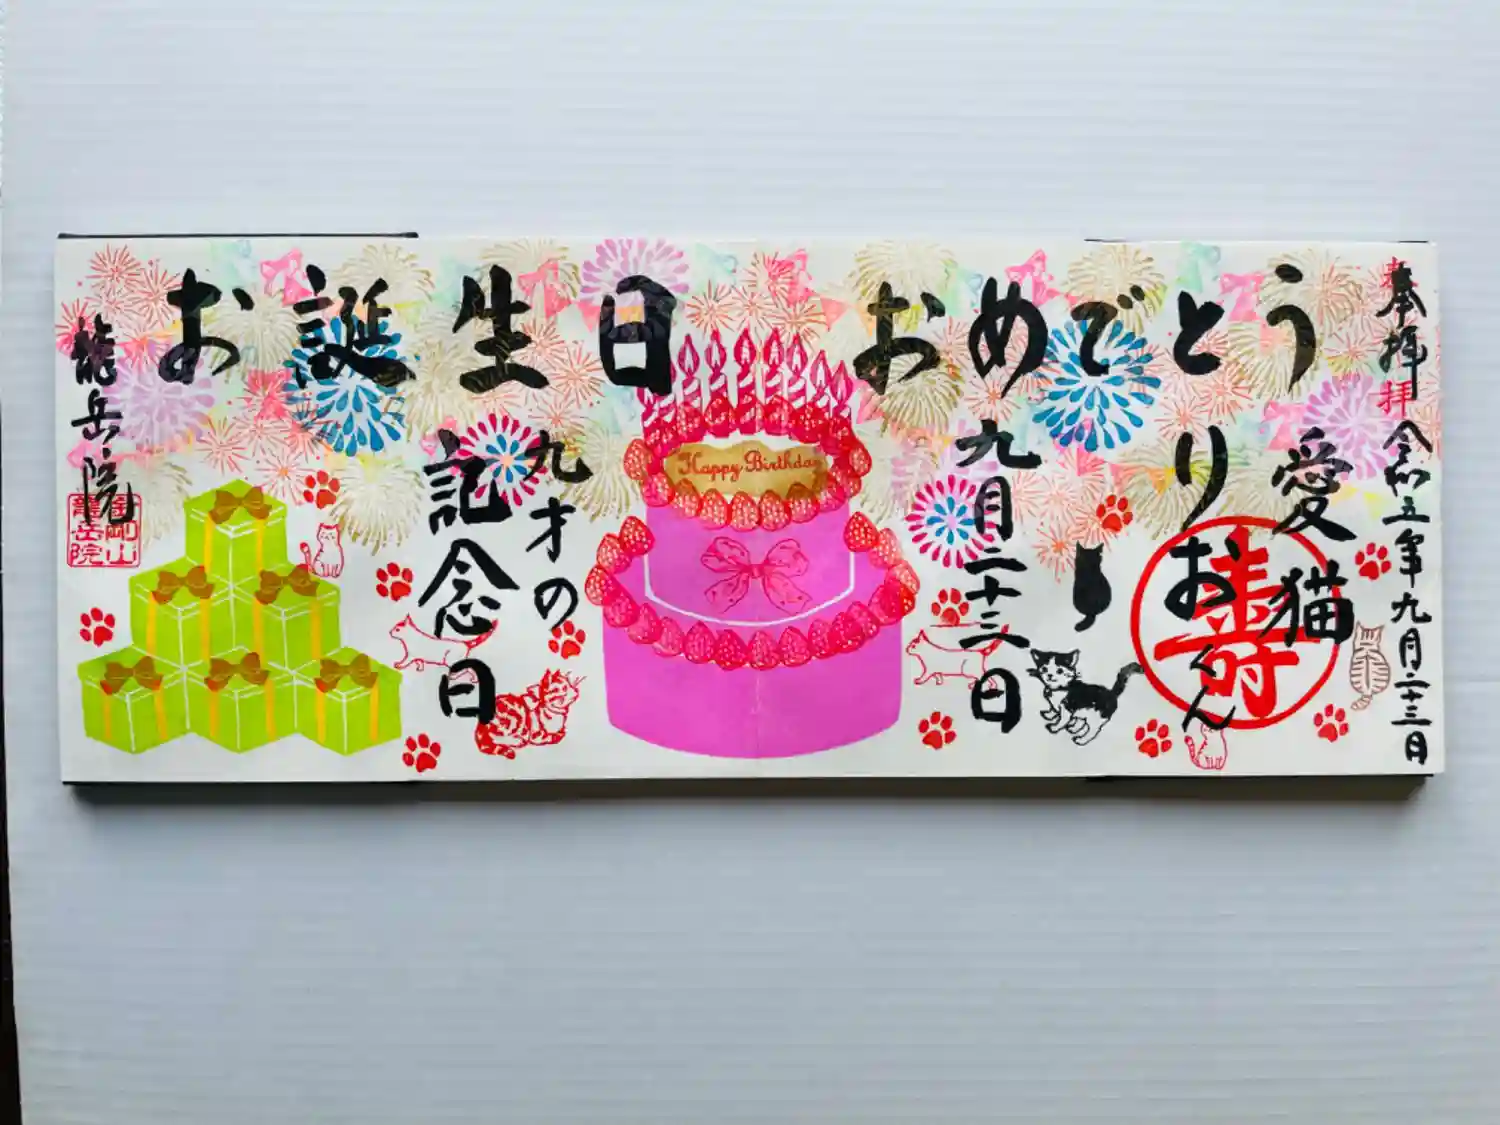 お誕生日おめでとう
奉拝
奉拝 令和五年九月二十三日
愛猫
りおくん
寿
九月二十三日
Happy Birthday
九才の
記念日
龍岳院
金剛山
龍岳院